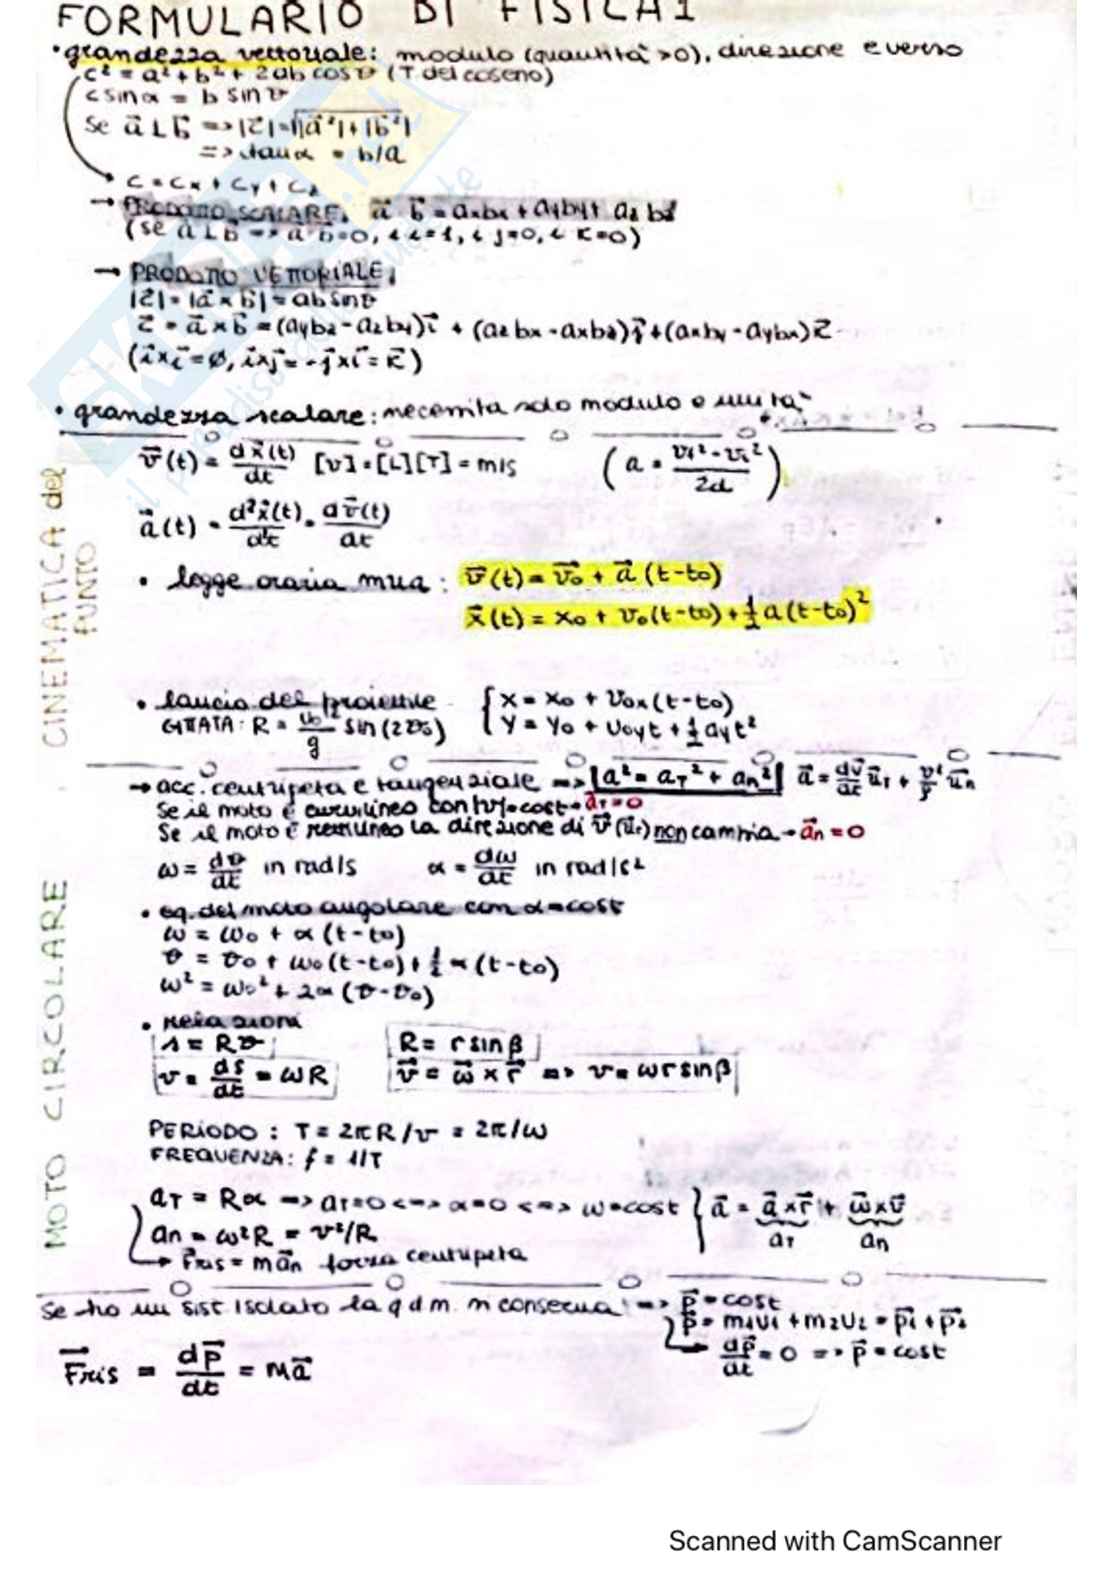 FORMULARIO DI FISICA 1
• grandezza vettoriale: modulo (quantità >0), direzione e verso
c² = a² + b² + 2ab cosϑ (T del coseno)
c sinα = b sinϑ
se a⃗ ⊥ b⃗ => |c⃗| = √|a⃗²| + |b⃗²|
=> tanα = b/a
c = cx + cy + cz
→ PRODOTTO SCALARE: a⃗ · b⃗ = axbx + ayby + azbz
(se a⃗ ⊥ b⃗ => a⃗·b⃗=0, i·i=1, i·j=0, i·k=0)
→ PRODOTTO VETTORIALE:
|c⃗| = |a⃗ × b⃗| = ab sinϑ
c⃗ = a⃗ × b⃗ = (aybz - azby)i⃗ + (azbx - axbz)j⃗ + (axby - aybx)k⃗
(i⃗×i⃗=ø, i⃗×j⃗ = -j⃗×i⃗ = k⃗)
• grandezza scalare: necessita solo modulo e unità
CINEMATICA del PUNTO
v⃗(t) = dx⃗(t)/dt [v] = [L][T] = m/s (a = (vf² - vi²)/2d)
a⃗(t) = d²x⃗(t)/dt = dv⃗(t)/dt
• legge oraria mua: v⃗(t) = v⃗o + a⃗ (t-to)
x⃗(t) = xo + vo(t-to) + ½ a(t-to)²
• lancio del proiettile { x = xo + vox(t-to)
GITTATA: R = vo²/g sin(2ϑo) y = yo + voyt + ½ ayt²
MOTO CIRCOLARE
→ acc. centripeta e tangenziale => |a² = aT² + an²| a⃗ = dv⃗/dt u⃗T + v²/ρ u⃗n
Se il moto è curvilineo con |v|=cost → a⃗T = 0
Se il moto è rettilineo la direzione di v⃗ (u⃗T) non cambia → a⃗n = 0
ω = dϑ/dt in rad/s α = dω/dt in rad/s²
• eq. del moto angolare con α=cost
ω = ωo + α (t-to)
ϑ = ϑo + ωo (t-to) + ½ α (t-to)
ω² = ωo² + 2α (ϑ-ϑo)
• Relazioni
s = Rϑ R = r sinβ
v = ds/dt = ωR v⃗ = ω⃗ × r⃗ => v = ωr sinβ
PERIODO : T = 2πR/v = 2π/ω
FREQUENZA: f = 1/T
aT = Rα => aT=0 <=> α=0 <=> ω=cost } a⃗ = a⃗×r⃗ + ω⃗×v⃗
aT an
an = ω²R = v²/R
→ F⃗ris = ma⃗n forza centripeta
Se ho un sist isolato la qdm. m conserva: => p⃗ = cost
p⃗ = m1v1 + m2v2 = p⃗1 + p⃗2
→ dp⃗/dt = 0 => p⃗ = cost
F⃗ris = dp⃗/dt = ma⃗
Scanned with CamScanner